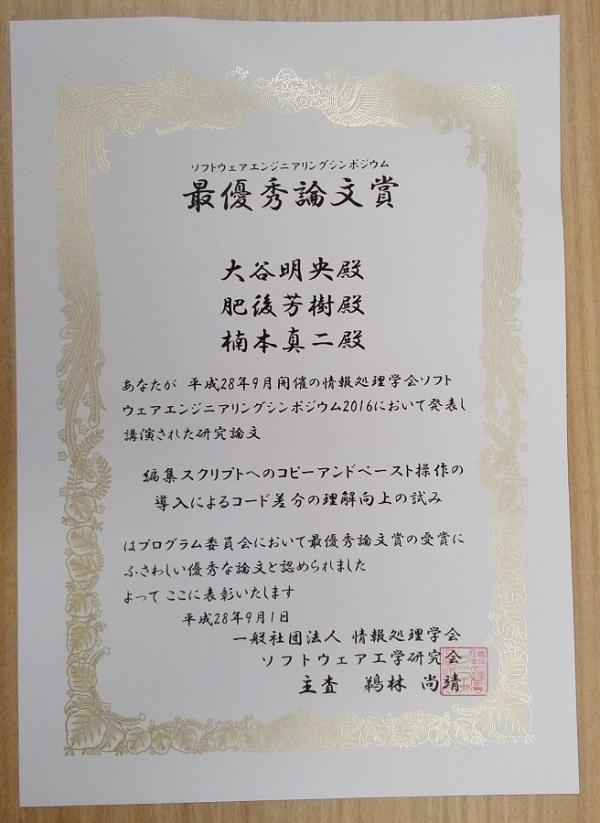 ソフトウェアエンジニアリングシンポジウム
最優秀論文賞
大谷明央殿
肥後芳樹殿
楠本真二殿
あなたが 平成28年9月開催の情報処理学会ソフト
ウェアエンジニアリングシンポジウム2016において発表し
講演された研究論文
編集スクリプトへのコピーアンドペースト操作の
導入によるコード差分の理解向上の試み
はプログラム委員会において最優秀論文賞の受賞に
ふさわしい優秀な論文と認められました
よって ここに表彰いたします
平成28年9月1日
一般社団法人 情報処理学会
ソフトウェア工学研究会
主査 鵜林 尚靖